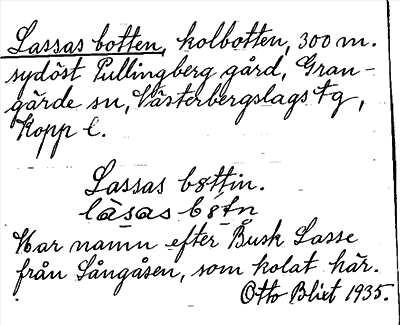 Lassas botten, kolbotten, 300 m.
sydöst Pullingberg gård, Gran-
gärde sn, Västerbergslags tg,
Kopp l.
Lassas bøttin.
làsas bøtn
Har namn efter Busk Lasse
från Sångåsen, som kolat här.
Otto Blixt 1935.